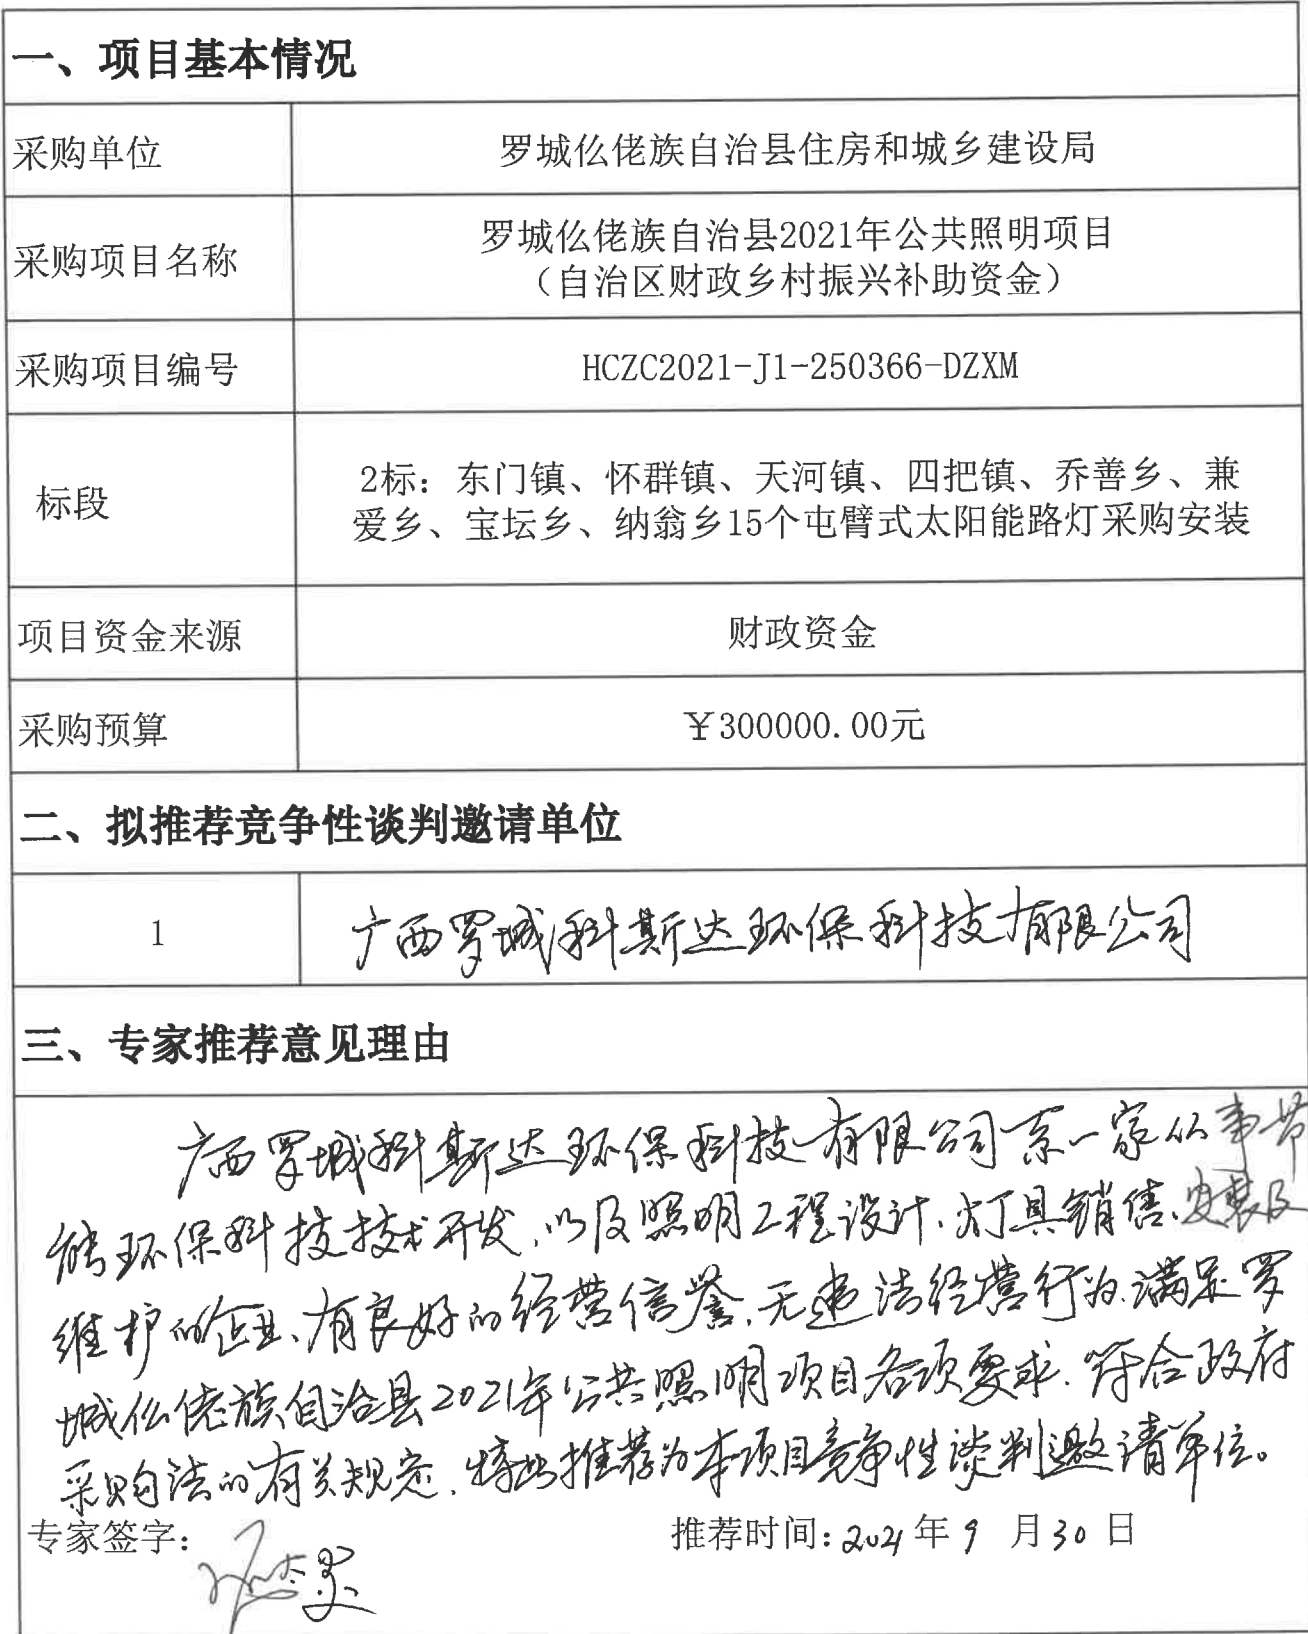 一、项目基本情况
采购单位
罗城仫佬族自治县住房和城乡建设局
采购项目名称
罗城仫佬族自治县2021年公共照明项目
（自治区财政乡村振兴补助资金）
采购项目编号
HCZC2021-J1-250366-DZXM
标段
2标：东门镇、怀群镇、天河镇、四把镇、乔善乡、兼
爱乡、宝坛乡、纳翁乡15个屯臂式太阳能路灯采购安装
项目资金来源
财政资金
采购预算
￥300000.00元
二、拟推荐竞争性谈判邀请单位
1
广西罗城科斯达环保科技有限公司
三、专家推荐意见理由
广西罗城科斯达环保科技有限公司系一家从事节
能环保科技技术开发，以及照明工程设计、灯具销售、安装及
维护的企业、有良好的经营信誉，无违法经营行为，满足罗
城仫佬族自治县2021年公共照明项目各项要求，符合政府
采购法的有关规定，特此推荐为本项目竞争性谈判邀请单位。
专家签字：
推荐时间：2021年9月30日